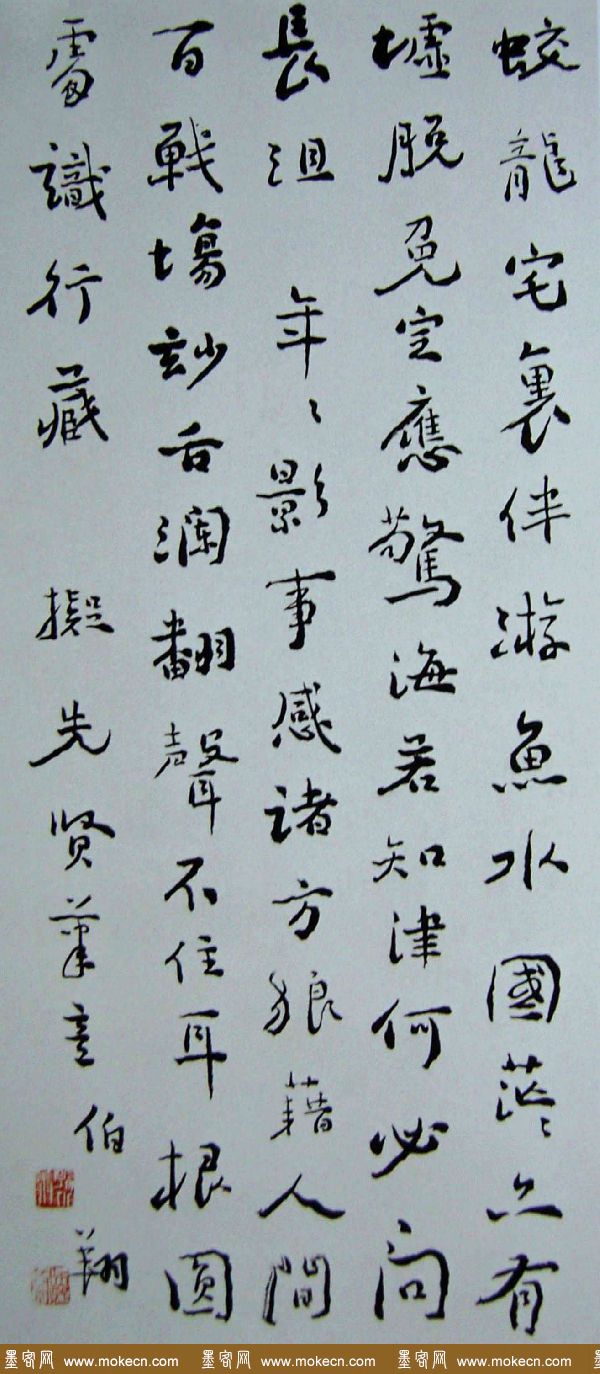 蛟龍宅裏伴游魚水國茫〻亦有
墟脫免定應驚海若知津何必问
長沮 年〻影事感諸方狼藉人間
百戰場妙舌瀾翻聲不住耳根圓
處識行藏
擬先贤筆意 伯翔
墨客网 www.mokecn.com 墨客网 www.mokecn.com 墨客网 www.mokecn.com